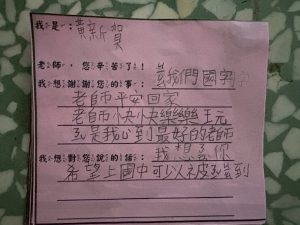 我是：黃新賀
老師，您辛苦了！
我想謝謝您的事：教我們國字
老師平安回家
老師快快樂樂
是我心到最好的老師
我想對您說的話：我想主你
希望上國中可以被 到